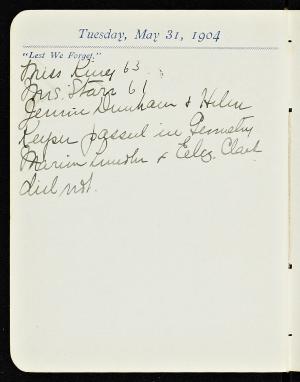 Tuesday, May 31, 1904
"Lest We Forget."
Miss King 63
Mrs. Starr 61
Jennie Dunham & Helen
Keyser passed in Geometry
Marion Lincoln & Clark
did not.